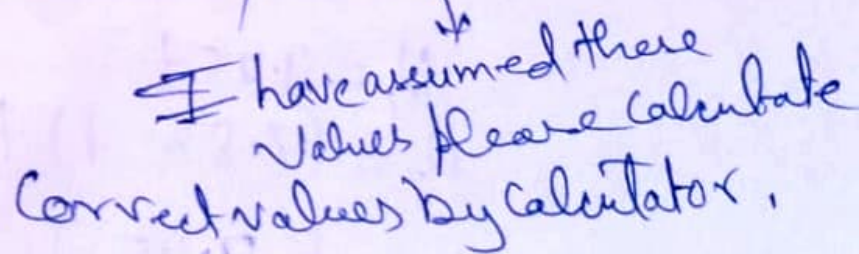 I have assumed these
values please calculate
correct values by calculator.